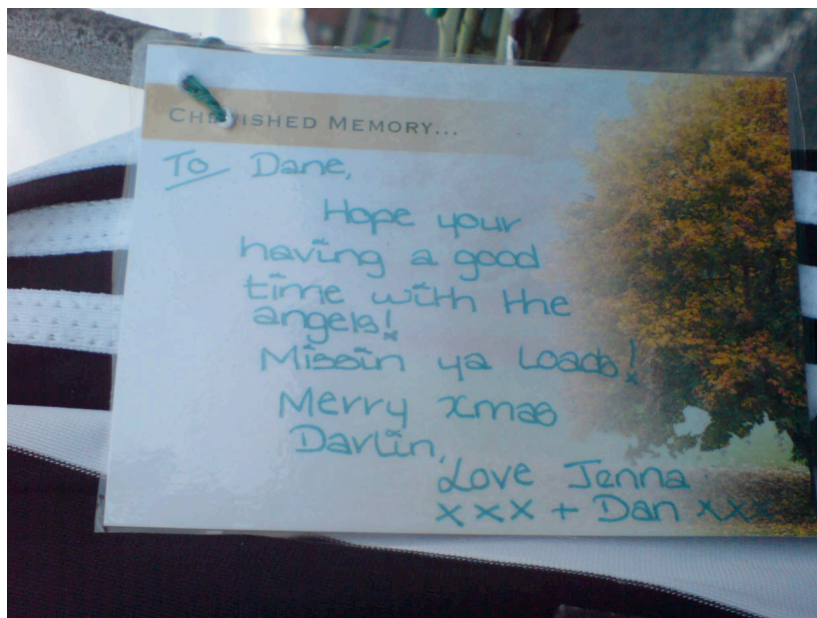 CHERISHED MEMORY...
To Dane,
Hope your
having a good
time with the
angels!
Missin ya Loads!
Merry xmas
Darlin,
Love Jenna
xxx + Dan xxx